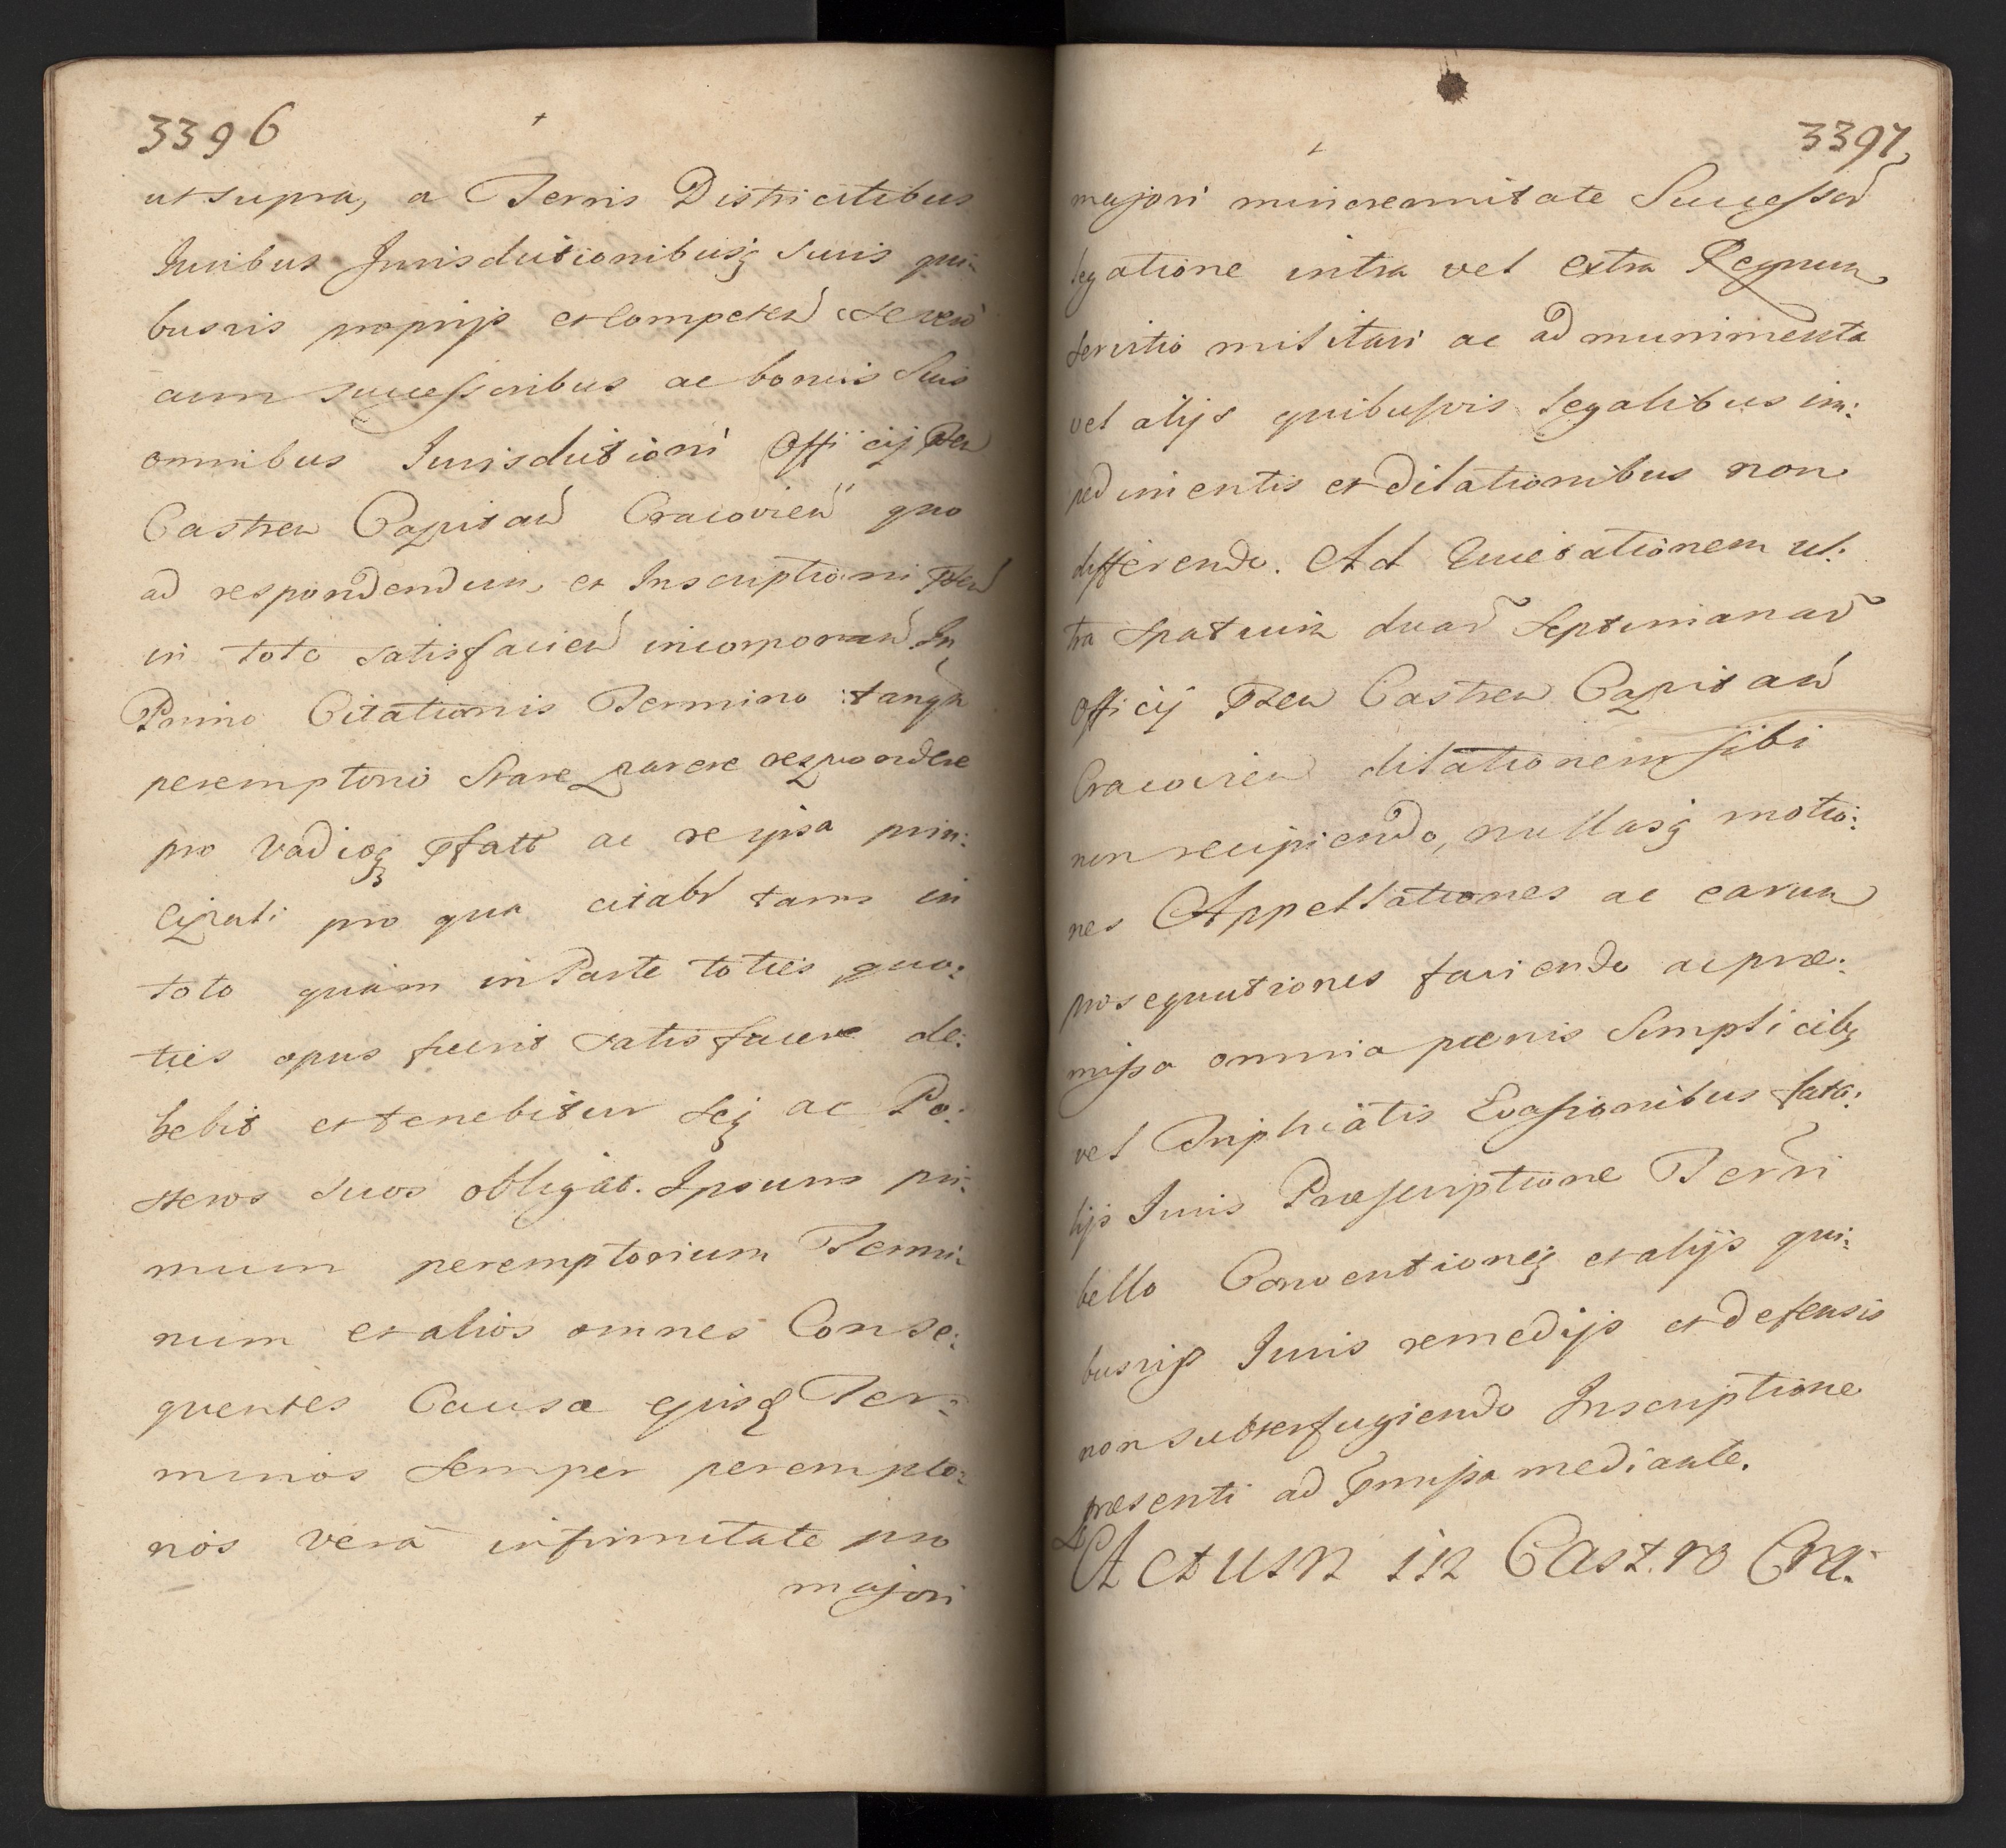 3396
ut supra, a Terris Districtibus
Iuribus Jurisdictionibusq suis qui-
busvis proprijs et Competen se reru
cum successoribus ac bonis suis
omnibus Jurisdictioni Officij Pten
Castren Capitan Cracovien quo
ad respondendum et Inscriptioni Pten
in toto satisfacien incorporan In
Primo Citationis Termino tanqm
peremptorio stare parere respondere
pro vadioq Pfatt ac re ipsa prin:
cipali pro qua citabr tam in
toto quam in Parte toties quo:
ties opus fuerit satisfacere de:
bebit et tenebitur seq ac Po:
steros suos obligat. Ipsum pri-
mum peremptorium Termi-
num et alios omnes Conse:
quentes Causæ ejusq Ter-
minos semper perempto:
rios vera infirmitate pro
majori
3397
majori minorennitate Successor
legatione intra vel extra Regnum
servitio militari ac ad munimenta
vel alijs quibusvis legalibus im:
pedimentis et dilationibus non
differendo. Ad Quietationem ul:
tra spatium duar septimanar
Officij Pten Castren Capitan
Cracovien dilationem sibi
non recipiendo, nullasq motio:
nes Appellationes ac earum
prosequutiones faciendo ac præ:
missa omnia pænis simplicibq
vel Triplicatis Evasionibus fata:
lijs Iuris Præscriptione Terri
bello Conventioneq et alijs qui:
busvis Iuris remedijs et defensis
non subterfugiendo Inscriptione
præsenti ad Præmissa mediante.
Actum in Castro Cra: